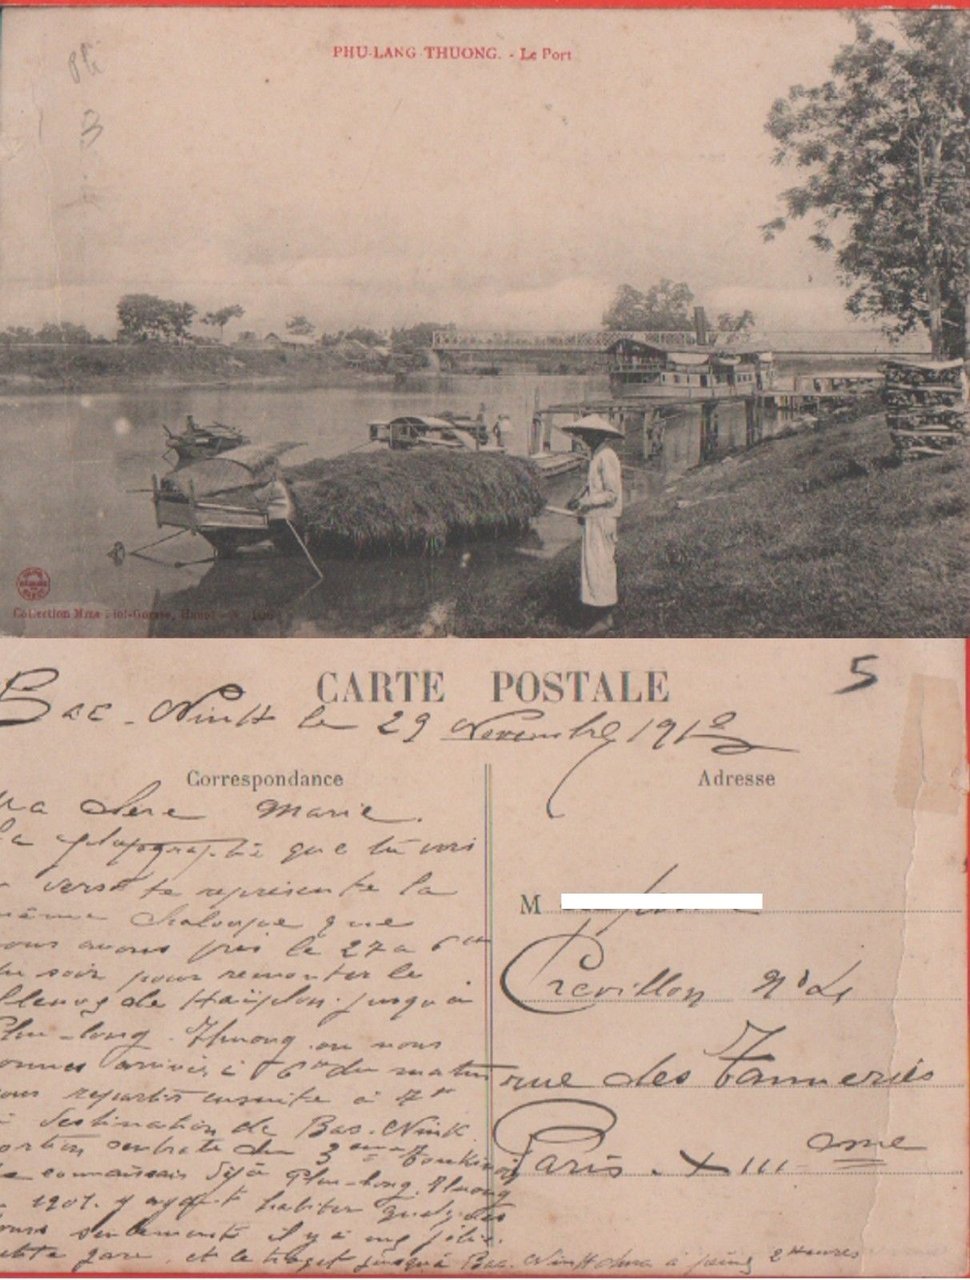 PHU-LANG-THUONG. - Le Port
3
Collection Mme
CARTE POSTALE
5
Bac-Ninh le 29 Novembre 191
Correspondance
Adresse
Ma chere Marie.
que tu vois
verso te représente la
même chaloupe que
nous avons pris le 27 a 6
du soir pour remonter le
fleuve de Haïphon. jusqu'à
Phu-long. Thuong ou nous
sommes arrivés à 6 du matin
nous repartis ensuite à
à destination de Bac-Ninh
portion centrale du 3 eme Tonkinois
Je connaissais déjà Phu-long. Thuong
1907. y ayant habiter quelques
jours seulement il y à une jolie.
petite gare et le trajet jusqu'à Bac. Ninh dura à peine 2 Heures
M
Crevillon
rue des Tanneries
Paris. XIII eme